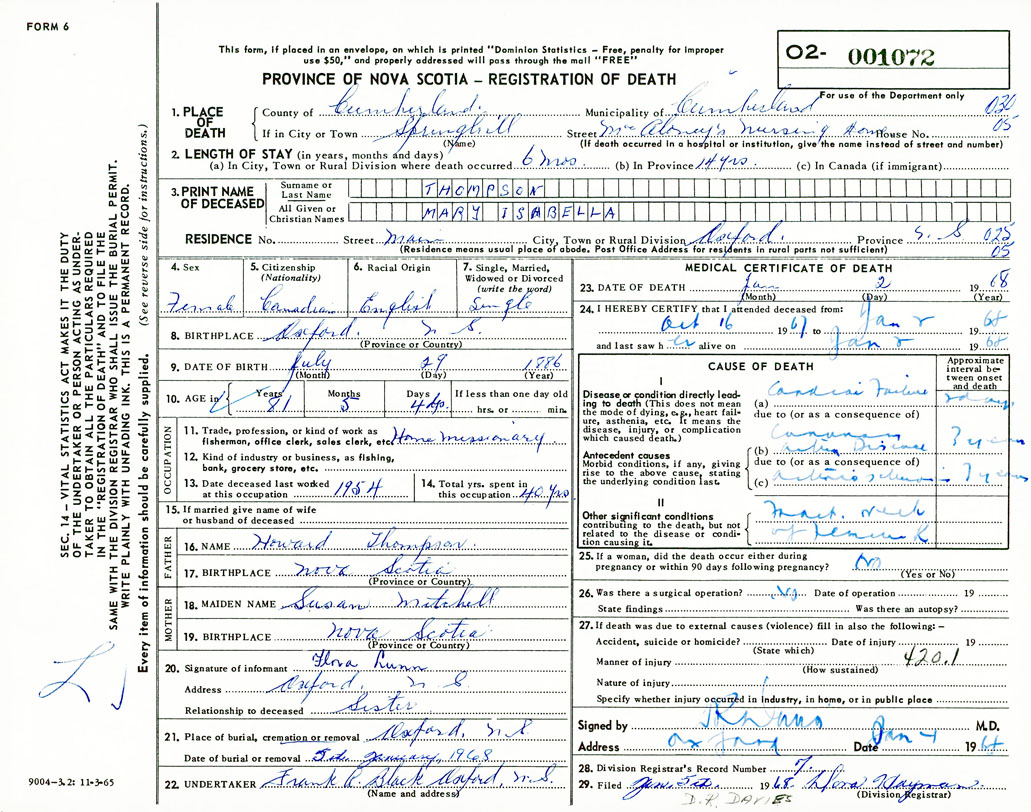 FORM 6
This form, if placed in an envelope, on which is printed "Dominion Statistics – Free, penalty for improper
use $50," and properly addressed will pass through the mail "FREE"
O2- 001072
PROVINCE OF NOVA SCOTIA – REGISTRATION OF DEATH
For use of the Department only
1. PLACE OF DEATH
County of Cumberland. Municipality of Cumberland 030
If in City or Town Springhill Street McAloney's Nursing Home House No. 05
(Name) (If death occurred in a hospital or institution, give the name instead of street and number)
2. LENGTH OF STAY (in years, months and days)
(a) In City, Town or Rural Division where death occurred 6 mos (b) In Province 14 yrs (c) In Canada (if immigrant)
3. PRINT NAME OF DECEASED
Surname or Last Name THOMPSON
All Given or Christian Names MARY ISABELLA
RESIDENCE No. Street Main City, Town or Rural Division Oxford. Province N.S 025
(Residence means usual place of abode. Post Office Address for residents in rural parts not sufficient) 05
4. Sex Female
5. Citizenship (Nationality) Canadian
6. Racial Origin English
7. Single, Married, Widowed or Divorced (write the word) Single
8. BIRTHPLACE Oxford. N.S.
(Province or Country)
9. DATE OF BIRTH July 29 1886
(Month) (Day) (Year)
10. AGE in Years 81 Months 5 Days If less than one day old hrs. or min.
OCCUPATION
11. Trade, profession, or kind of work as
fisherman, office clerk, sales clerk, etc. Home Missionary
12. Kind of industry or business, as fishing,
bank, grocery store, etc.
13. Date deceased last worked at this occupation 1954
14. Total yrs. spent in this occupation 40 yrs
15. If married give name of wife
or husband of deceased
FATHER
16. NAME Howard Thompson.
17. BIRTHPLACE Nova Scotia
(Province or Country)
MOTHER
18. MAIDEN NAME Susan Mitchell
19. BIRTHPLACE Nova Scotia
(Province or Country)
20. Signature of informant Flora Lunn
Address Oxford. N.S.
Relationship to deceased Sister
21. Place of burial, cremation or removal Oxford, N.S.
Date of burial or removal 5th January, 1968
22. UNDERTAKER Frank A. Black Oxford, N.S.
(Name and address)
MEDICAL CERTIFICATE OF DEATH
23. DATE OF DEATH Jan 2 1968
(Month) (Day) (Year)
24. I HEREBY CERTIFY that I attended deceased from:
Oct 16 1967 to Jan 2 1968
and last saw her alive on Jan 2 1968
CAUSE OF DEATH
Approximate interval between onset and death
I
Disease or condition directly leading to death (This does not mean the mode of dying, e.g., heart failure, asthenia, etc. It means the disease, injury, or complication which caused death.)
(a) Cardiac Failure
due to (or as a consequence of)
Antecedent causes
Morbid conditions, if any, giving rise to the above cause, stating the underlying condition last.
(b) Coronary Artery Disease
due to (or as a consequence of)
(c)
II
Other significant conditions
contributing to the death, but not related to the disease or condition causing it.
Fract. neck of femur R
25. If a woman, did the death occur either during
pregnancy or within 90 days following pregnancy? No
(Yes or No)
26. Was there a surgical operation? No Date of operation 19
State findings Was there an autopsy?
27. If death was due to external causes (violence) fill in also the following: –
Accident, suicide or homicide? Date of injury 19
(State which)
Manner of injury 420.1
(How sustained)
Nature of injury
Specify whether injury occurred in industry, in home, or in public place
Signed by M.D.
Address Oxford Date Jan 4 19
28. Division Registrar's Record Number 7
29. Filed Jan. 5th 1968 Flora Hayman
(Division Registrar)
D.R. DAVIES
SEC. 14 – VITAL STATISTICS ACT MAKES IT THE DUTY
OF THE UNDERTAKER OR PERSON ACTING AS UNDER-
TAKER TO OBTAIN ALL THE PARTICULARS REQUIRED
IN THE "REGISTRATION OF DEATH" AND TO FILE THE
SAME WITH THE DIVISION REGISTRAR WHO SHALL ISSUE THE BURIAL PERMIT.
WRITE PLAINLY WITH UNFADING INK. THIS IS A PERMANENT RECORD.
Every item of information should be carefully supplied. (See reverse side for instructions.)
9004–3.2: 11-3-65